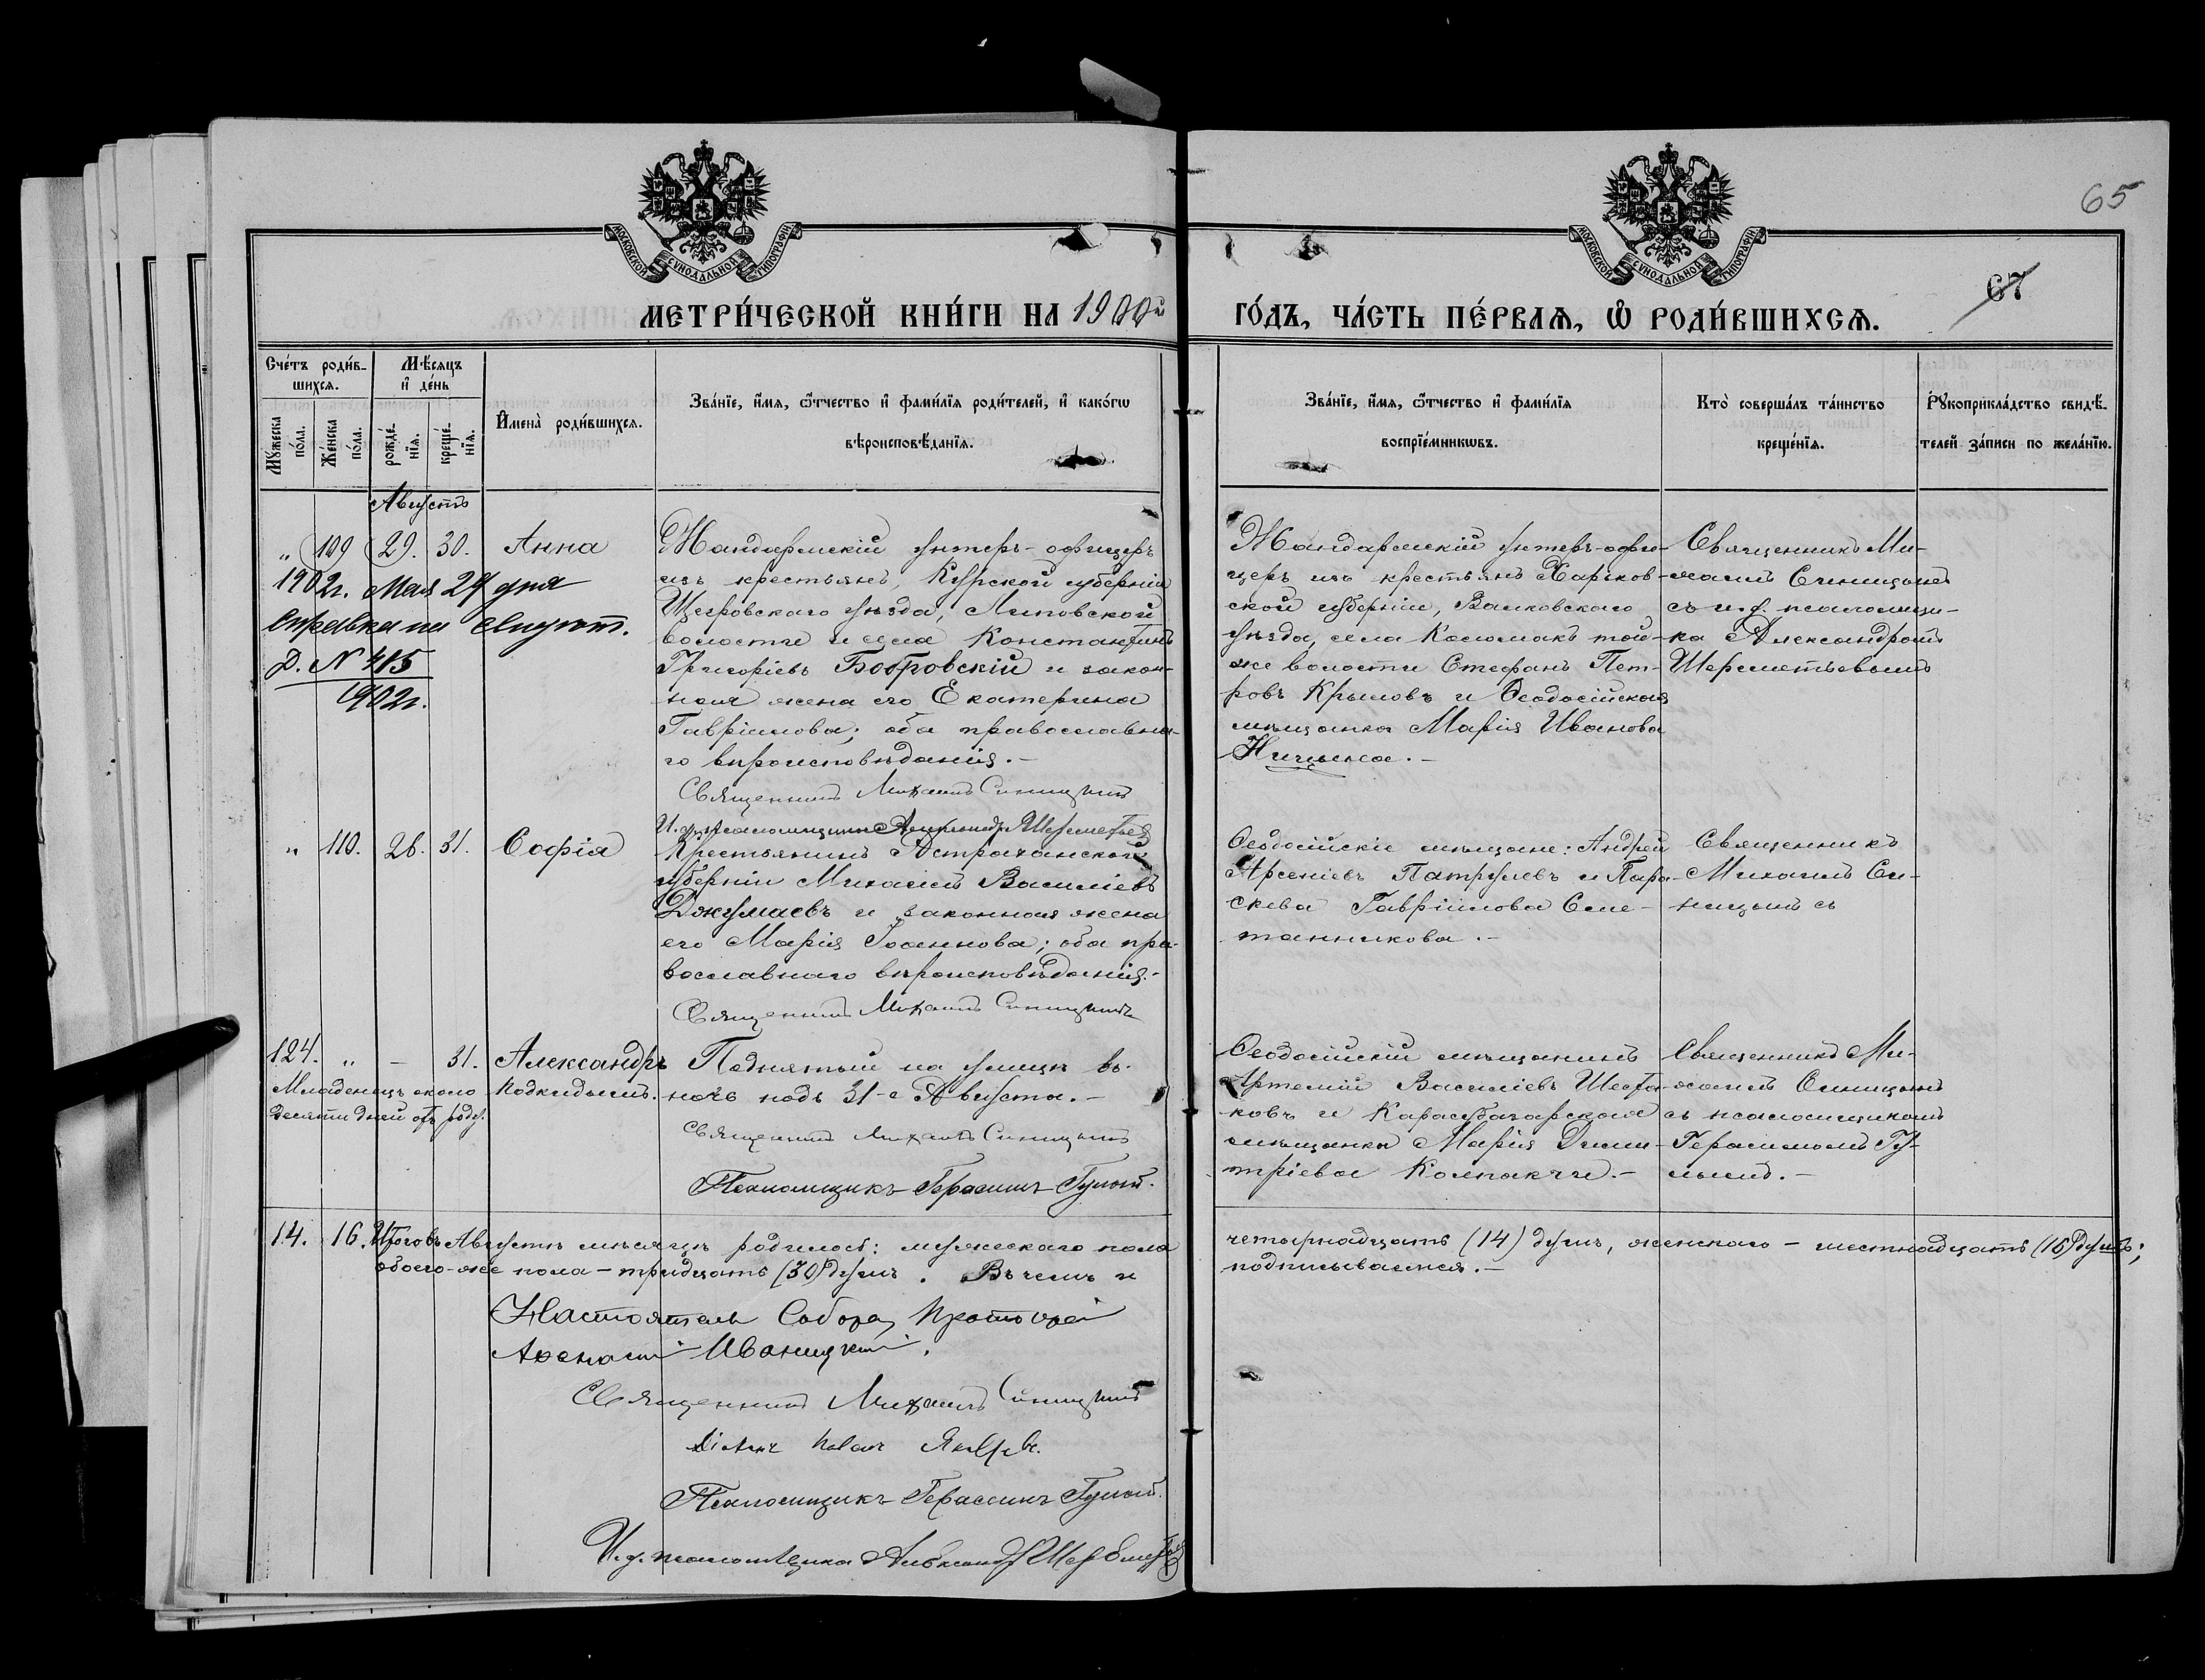 65
67
МОСКОВСКОЙ СУНОДАЛЬНОЙ ТИПОГРАФІИ
МОСКОВСКОЙ СУНОДАЛЬНОЙ ТИПОГРАФІИ
МЕТРИ́ЧЕСКОЙ КНИ́ГИ НА 1900й
ГО́ДЪ, ЧА́СТЬ ПЕ́РВАѦ, Ѡ РОДИ́ВШИХСѦ.
Сче́тъ роди́в-
шихсѧ.
Мѣ́сѧцъ
и҆ де́нь
Мꙋ́жеска
по́ла.
Же́нска
по́ла.
рожде́-
нїѧ.
креще́-
нїѧ.
И҆мена̀ роди́вшихсѧ.
Зва́нїе, и҆́мѧ, ѻ҆́тчество и҆ фами́лїѧ роди́телей, и҆ како́гѡ
вѣроисповѣ́данїѧ.
Зва́нїе, и҆́мѧ, ѻ҆́тчество и҆ фами́лїѧ
воспрїе́мникѡвъ.
Кто̀ соверша́лъ та́инство
креще́нїѧ.
Рꙋкоприкла́дство свидѣ́-
телей за́писи по жела́нїю.
Августъ
„ 109 29. 30. Анна
1902г. Мая 24 дня
Справка на
Д. № 415
902г.
Жандармскій унтеръ-офицеръ
изъ крестьянъ, Курской губерніи
Щигровскаго уѣзда, Липовской
волости и села Константинъ
Григоріевъ Бобровскій и закон-
ная жена его Екатерина
Гавріилова; оба православна-
го вѣроисповѣданія.-
Священникъ Михаилъ Синицынъ
И. д. псаломщика Александръ Шереметьевъ
Жандармскій унтеръ-офи-
церъ изъ крестьянъ Харьков-
ской губерніи, Валковскаго
уѣзда, села Коломакъ той-
же волости Стефанъ Пет-
ровъ Крымовъ и Ѳеодосійская
мѣщанка Марія Иванова
Священникъ Ми-
хаилъ Синицынъ
съ и. д. псаломщи-
ка Александромъ
Шереметьевымъ
„ 110. 26. 31. Софія
Крестьянинъ Астраханской
губерніи Михаилъ Василіевъ
Джумаевъ и законная жена
его Марія Іоаннова; оба пра-
вославнаго вѣроисповѣданія.-
Священникъ Михаилъ Синицынъ
Ѳеодосійскіе мѣщане: Андрей
Арсеніевъ Патрулевъ и Пара-
скева Гавріилова Сме-
танникова.-
Священникъ
Михаилъ Си-
ницынъ съ
124. „ — 31. Александръ
Младенецъ около
десяти дней отъ роду.
Подкидышъ.
Поднятый на улицѣ въ
ночь подъ 31-е Августа.-
Священникъ Михаилъ Синицынъ
Псаломщикъ Герасимъ Гулый.
Ѳеодосійскій мѣщанинъ
Артемій Василіевъ Шеста-
ковъ и Карасубазарская
мѣщанка Марія Дими-
тріева Колпакчи.-
Священникъ Ми-
хаилъ Синицынъ
съ псаломщикомъ
Герасимомъ Гу-
лымъ.-
14. 16. Итого въ Августѣ мѣсяцѣ родилось: мужескаго пола
четырнадцать (14) душъ, женскаго - шестнадцать (16) душъ;
обоего-же пола - тридцать (30) душъ. Въ чемъ и
подписываемся.-
Настоятель Собора, Протоіерей
Иваницкій.
Священникъ Михаилъ Синицынъ
Діаконъ Павелъ
Псаломщикъ Герасимъ Гулый.
И. д. псаломщика Александръ Шереметьевъ